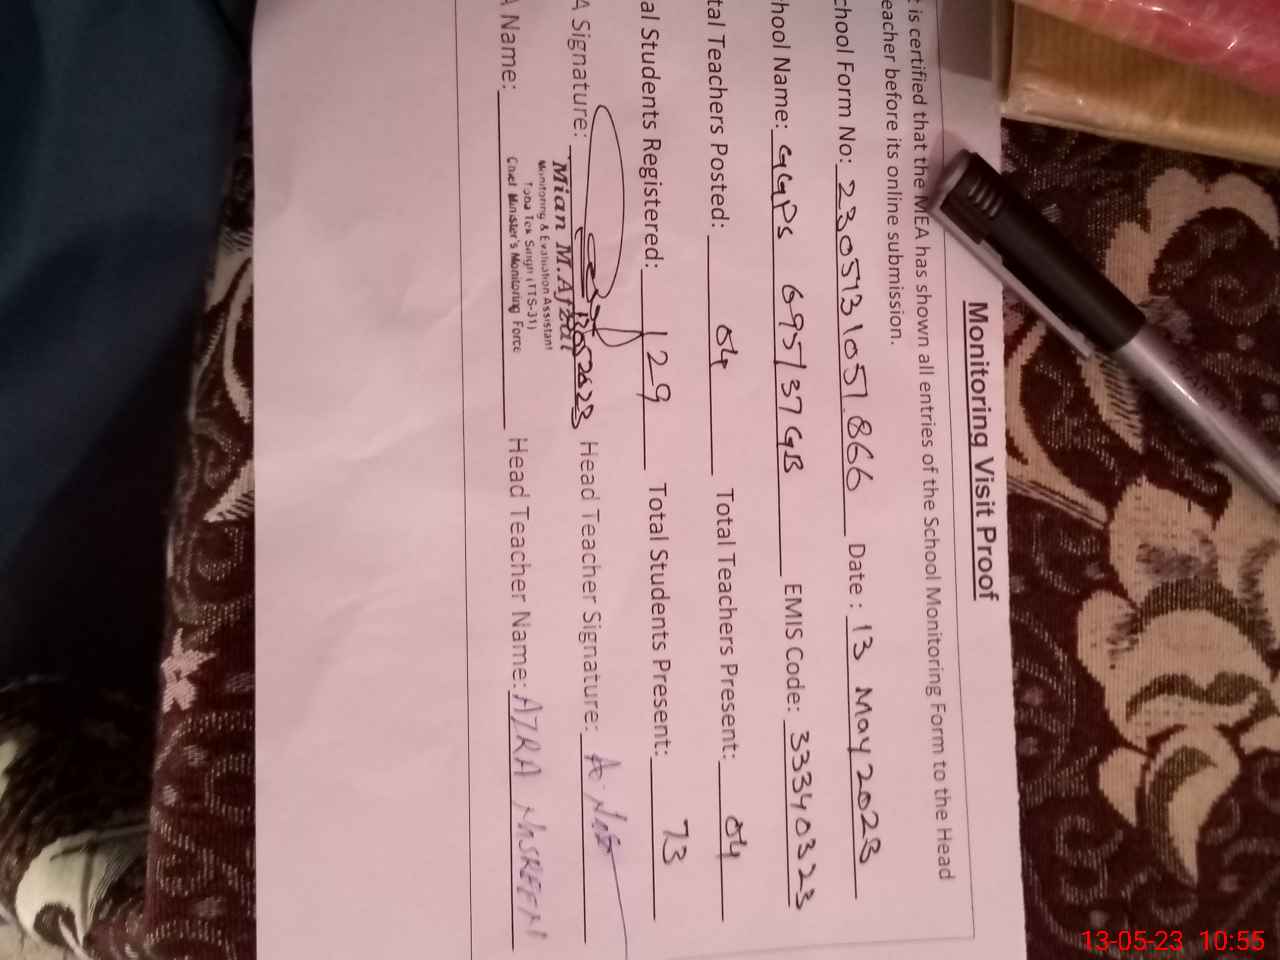 Monitoring Visit Proof
t is certified that the MEA has shown all entries of the School Monitoring Form to the Head
eacher before its online submission.
chool Form No: 2305131051.866 Date : 13 May 2023
hool Name: GGPS 695/37GB EMIS Code: 33340323
tal Teachers Posted: 04 Total Teachers Present: 04
al Students Registered: 129 Total Students Present: 73
A Signature: 13052023 Head Teacher Signature:
Mian M.Afzal
Monitoring & Evaluation Assistant
Toba Tek Singh (TTS-31)
Chief Minister's Monitoring Force
A Name: Head Teacher Name: AZRA NASREEN
13-05-23 10:55